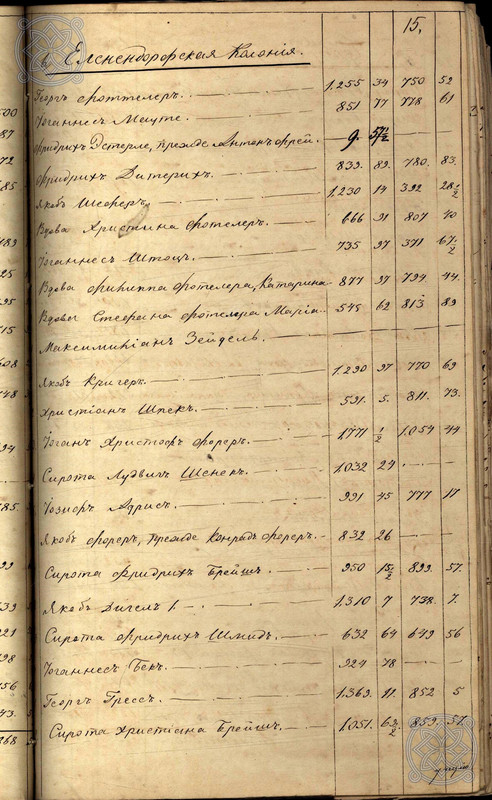 15.
в, Елененdorфская Колонія.
Георгъ Фроттелеръ. 1,255 34 750 52
Іоганнесъ Мауте. 851 77 778 61
Фридрихъ Эстерле, прежде Антонъ Фрей. 9. 57½
Фридрихъ Дитерихъ. 839. 89. 780. 83.
Якобъ Шеферъ. 1,230 14 392 28½
Вдова Христина Фротелеръ. 666 91 807 40
Іоганнесъ Штоцъ. 735 97 371 67½
Вдова Филиппа Фротелера, Катарина 877 97 794 44.
Вдовы Стефана Фротелера Марія. 545 62 813 89
Максимиліанъ Зейдель.
Якобъ Кригеръ. 1,290 97 770 69
Христіанъ Шпекъ. 591. 5. 811. 73.
Іоганъ Христофъ Фореръ. 1,771 ½ 1,054 44
Сирота Лудвигъ Шенекъ. 1,032 24
Іозифъ Адрисъ. 991 45 777 17
Якобъ Фореръ, прежде Конрадъ Фореръ. 832 26
Сирота Фридрихъ Брейшъ. 950 15½ 899. 57.
Якобъ Дигель 1. 1,310 7 738. 7.
Сирота Фридрихъ Шмидъ. 632 64 649 56
Іоганнесъ Бекъ. 924 78
Георгъ Грессъ. 1,369. 11. 852 5
Сирота Христіана Брейшъ. 1,051. 63½ 859. 57.